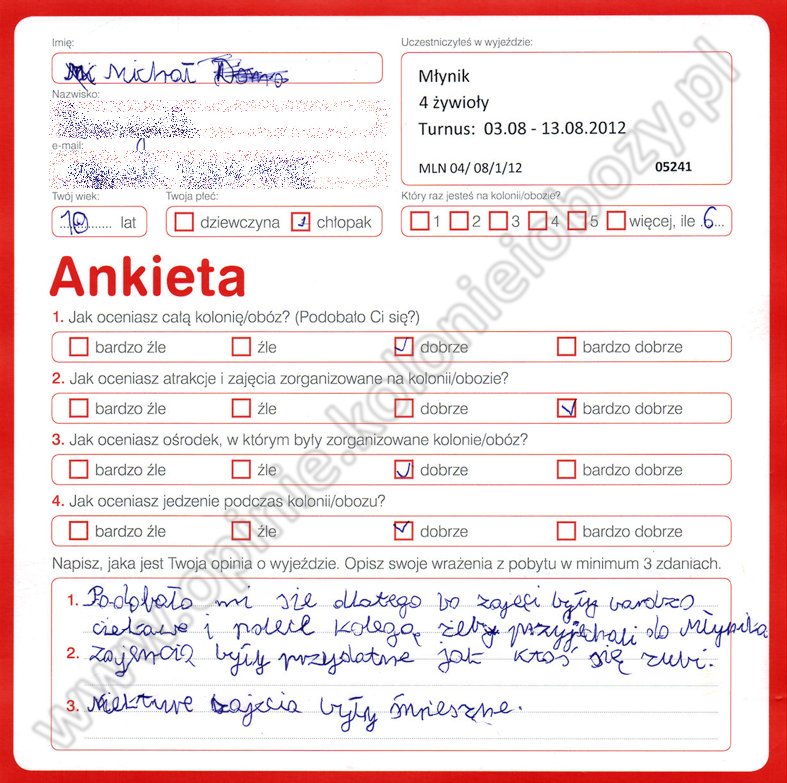 Imię:
Michał
Nazwisko:
e-mail:
Twój wiek:
10 lat
Twoja płeć:
dziewczyna chłopak
Uczestniczyłeś w wyjeździe:
Młynik
4 żywioły
Turnus: 03.08 - 13.08.2012
MLN 04/ 08/1/12 05241
Który raz jesteś na kolonii/obozie?
1 2 3 4 5 więcej, ile 6
Ankieta
1. Jak oceniasz całą kolonię/obóz? (Podobało Ci się?)
bardzo źle źle dobrze bardzo dobrze
2. Jak oceniasz atrakcje i zajęcia zorganizowane na kolonii/obozie?
bardzo źle źle dobrze bardzo dobrze
3. Jak oceniasz ośrodek, w którym były zorganizowane kolonie/obóz?
bardzo źle źle dobrze bardzo dobrze
4. Jak oceniasz jedzenie podczas kolonii/obozu?
bardzo źle źle dobrze bardzo dobrze
Napisz, jaka jest Twoja opinia o wyjeździe. Opisz swoje wrażenia z pobytu w minimum 3 zdaniach.
1. Podobało mi się dlatego bo zajęci były bardzo
ciekawe i polecę kolegą, żeby przyjechali do Młynika
2. zajęncią były przydatne jak ktoś się zubi.
3. Niekture zajęcia były śmieszne.
www.opinie.kolonieiobozy.pl